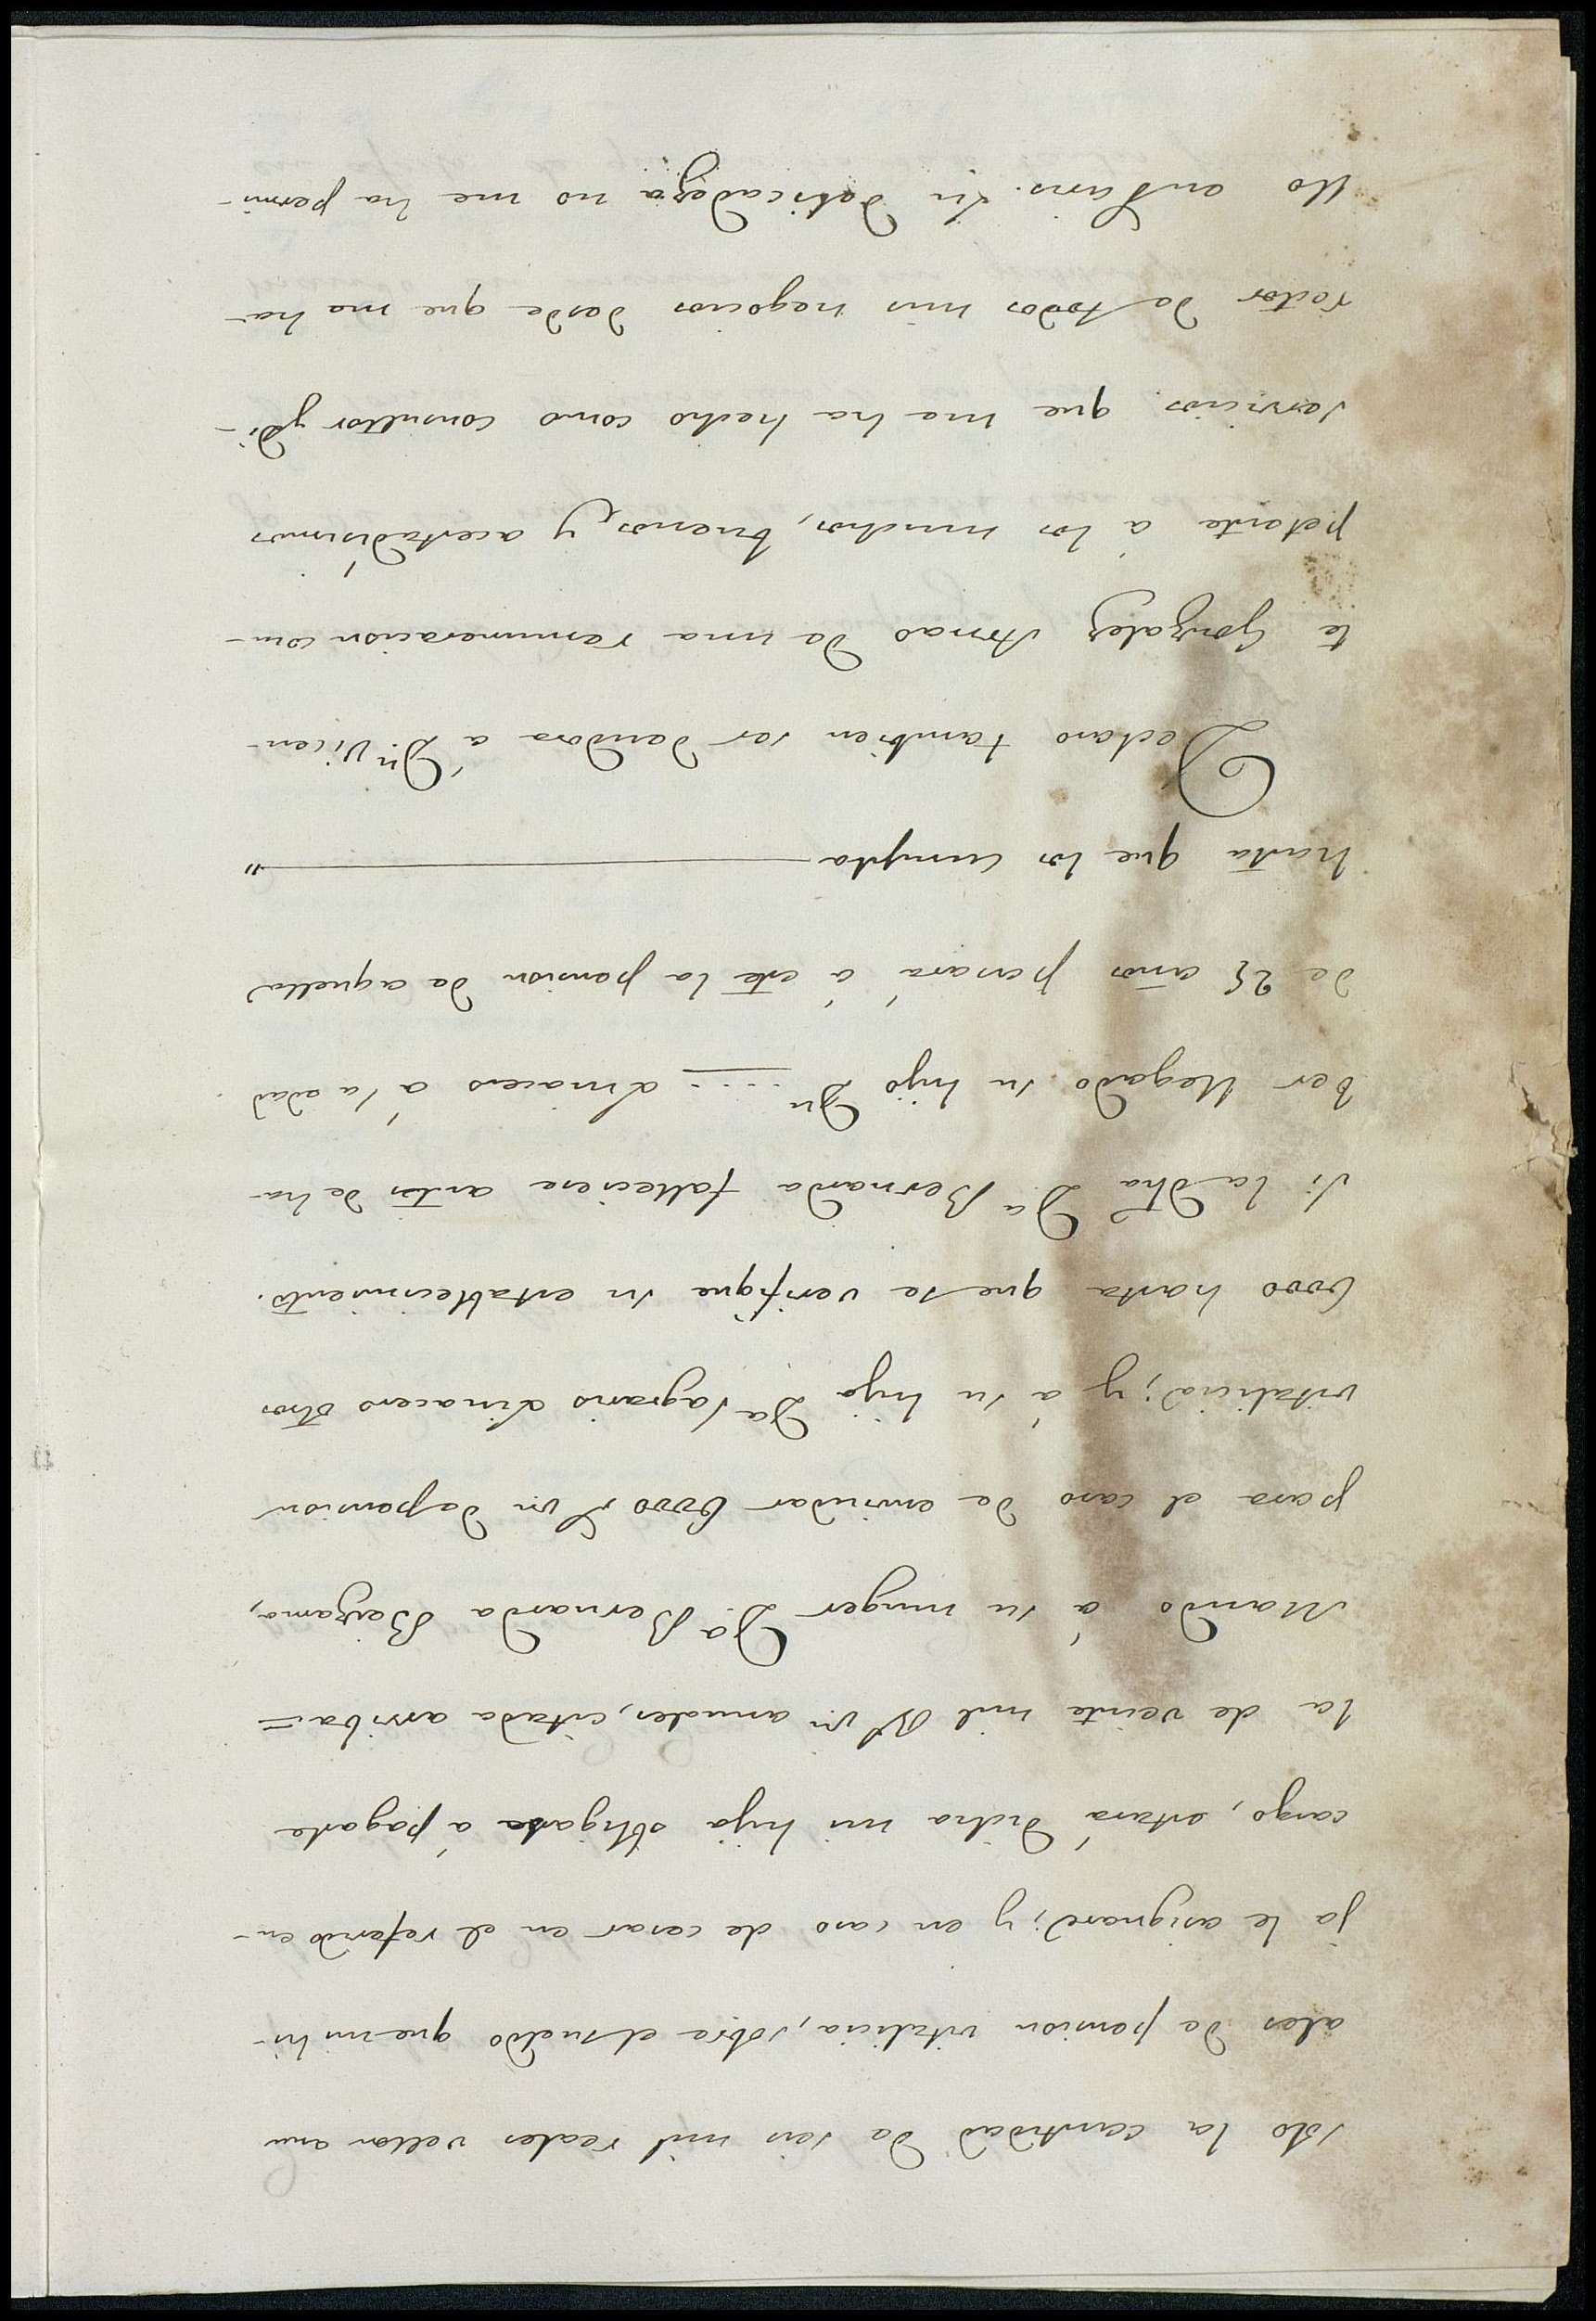 solo la cantidad de seis mil reales vellon anu
ales de pension vitalicia, sobre el sueldo que mi hi-
ja le asignare; y en caso de cesar en el referido en-
cargo, estará dicha mi hija obligada á pagarle
la de veinte mil Rs vn anuales, citada arriba =
Mando á su muger Da. Bernarda Bayzama,
para el caso de enviudar 6000 rs vn de pension
vitalicia; y á su hija Da Sagrario Linacero otros
6000 hasta que se verifique su establecimiento.
Si la dha Da Bernarda falleciere antes de ha-
ber llegado su hijo Dn ..... Linacero á la edad
de 25 años pasará á este la pension de aquella
hasta que los cumpla ——— "
Declaro tambien ser deudora á Dn. Vicen-
te Gonzalez Arnao de una remuneracion com-
petente á los muchos, buenos, y acertadisimos
servicios que me ha hecho como consultor y di-
rector de todos mis negocios desde que me ha-
llo en Paris. Su delicadeza no me ha permi-